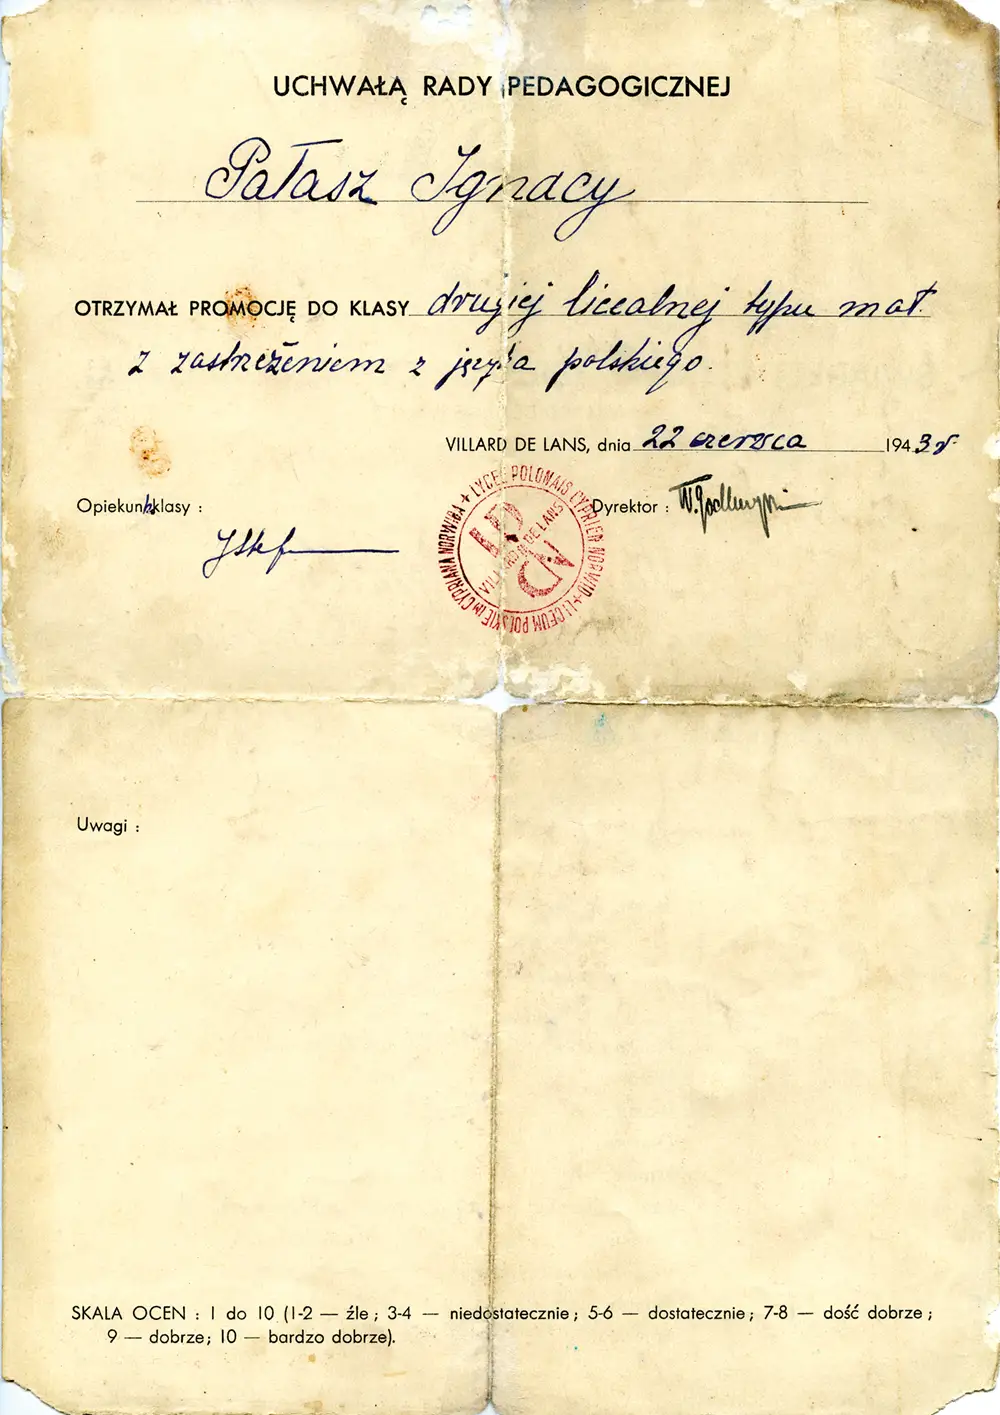 UCHWAŁĄ RADY PEDAGOGICZNEJ
Pałasz Ignacy
OTRZYMAŁ PROMOCJĘ DO KLASY drugiej licealnej typu mat.
z zastrzeżeniem z języka polskiego.
VILLARD DE LANS, dnia 22 czerwca 1943 r
Opiekun klasy :
Dyrektor :
+ LYCEE POLONAIS CYPRIEN NORWID + LICEUM POLSKIE IM CYPRIANA NORWIDA
VILLARD DE LANS
Uwagi :
SKALA OCEN : 1 do 10 (1-2 — źle ; 3-4 — niedostatecznie ; 5-6 — dostatecznie ; 7-8 — dość dobrze ;
9 — dobrze; 10 — bardzo dobrze).